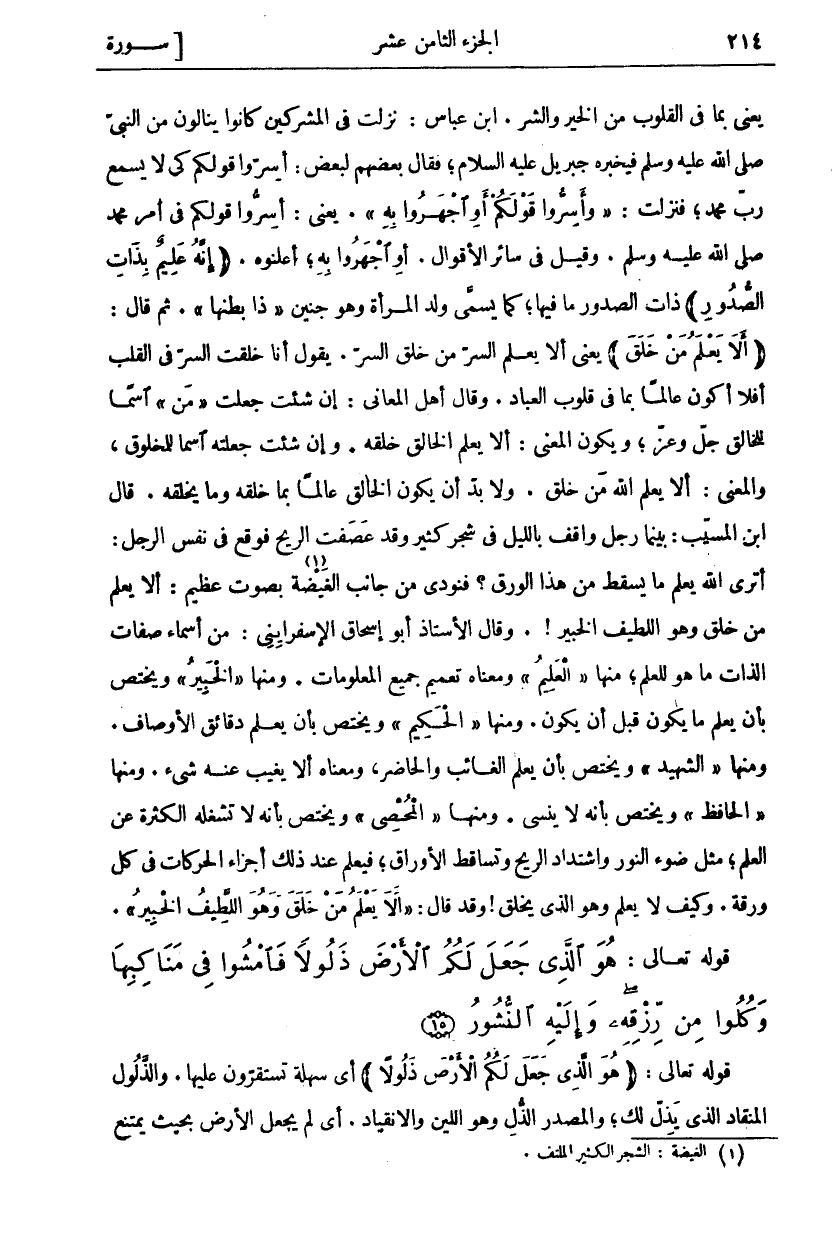 ٢١٤ الجزء الثامن عشر [ ســورة
يعنى بما فى القلوب من الخير والشر . ابن عباس : نزلت فى المشركين كانوا ينالون من النبىّ
صلى الله عليه وسلم فيخبره جبريل عليه السلام؛ فقال بعضهم لبعض : أسرّوا قولكم كى لا يسمع
ربّ محمد؛ فنزلت : « وأَسِرُّوا قَوْلَكُمْ أَوِ ٱجْهَـرُوا بِهِ » . يعنى : أسِرُّوا قولكم فى أمر محمد
صلى الله عليـه وسلم . وقيـل فى سائر الأقوال . أوِ ٱجْهَرُوا بِهِ؛ أعلنوه . ﴿ إِنَّهُ عَلِيمٌ بِذَاتِ
الصُّدُورِ ﴾ ذات الصدور ما فيها؛ كما يسمَّى ولد المـرأة وهو جنين « ذا بطنها » . ثم قال :
﴿ أَلَا يَعْلَمُ مَنْ خَلَقَ ﴾ يعنى ألا يعـلم السرّ من خلق السرّ . يقول أنا خلقت السرّ فى القلب
أفلا أكون عالمًـا بما فى قلوب العباد . وقال أهل المعانى : إن شئت جعلت « مَن » ٱسمًـا
للخالق جلّ وعزّ ؛ ويكون المعنى : ألا يعلم الخالق خلقه . وإن شئت جعلته ٱسما للمخلوق ،
والمعنى : ألا يعلم الله مَن خلق . ولا بدّ أن يكون الخالق عالمـًا بما خلقه وما يخلقه . قال
ابن المسيّب : بينما رجل واقف بالليل فى شجر كثير وقد عَصَفت الريح فوقع فى نفس الرجل :
أترى الله يعلم ما يسقط من هذا الورق ؟ فنودى من جانب الغَيْضة (١) بصوت عظيم : ألا يعلم
من خلق وهو اللطيف الخبير ! . وقال الأستاذ أبو إسحاق الإسفراينى : من أسماء صفات
الذات ما هو للعلم؛ منها « الْعَلِيمُ » ومعناه تعميم جميع المعلومات . ومنها «الخَبِيرُ» ويختص
بأن يعلم ما يكون قبل أن يكون . ومنها « الحَـكِيم » ويختص بأن يعـلم دقائق الأوصاف .
ومنها « الشهيد » ويختص بأن يعلم الغـائب والحاضر، ومعناه ألا يغيب عنـه شىء . ومنها
« الحافظ » ويختص بأنه لا ينسى . ومنهـا « الُمحْصِى » ويختص بأنه لا تشغله الكثرة عن
العلم؛ مثل ضوء النور واشتداد الريح وتساقط الأوراق؛ فيعلم عند ذلك أجزاء الحركات فى كل
ورقة . وكيف لا يعلم وهو الذى يخلق ! وقد قال : «أَلَا يَعْلَمُ مَنْ خَلَقَ وَهُوَ اللَّطِيفُ الخَبِيرُ» .
قوله تعـالى : هُوَ ٱلَّذِى جَعَلَ لَكُمُ ٱلْأَرْضَ ذَلُولًا فَٱمْشُوا فِى مَنَاكِبِهَا
وَكُلُوا مِن رِّزْقِهِۦ ۖ وَإِلَيْهِ ٱلنُّشُورُ ١٥
قوله تعالى : ﴿ هُوَ الَّذِى جَعَلَ لَكُمُ الْأَرْضَ ذَلُولًا ﴾ أى سهلة تستقرّون عليها . والذَّلُول
المنقاد الذى يَذِلّ لك؛ والمصدر الذُّل وهو اللين والانقياد . أى لم يجعل الأرض بحيث يمتنع
(١) الغيضة : الشجر الكثير الملتف .